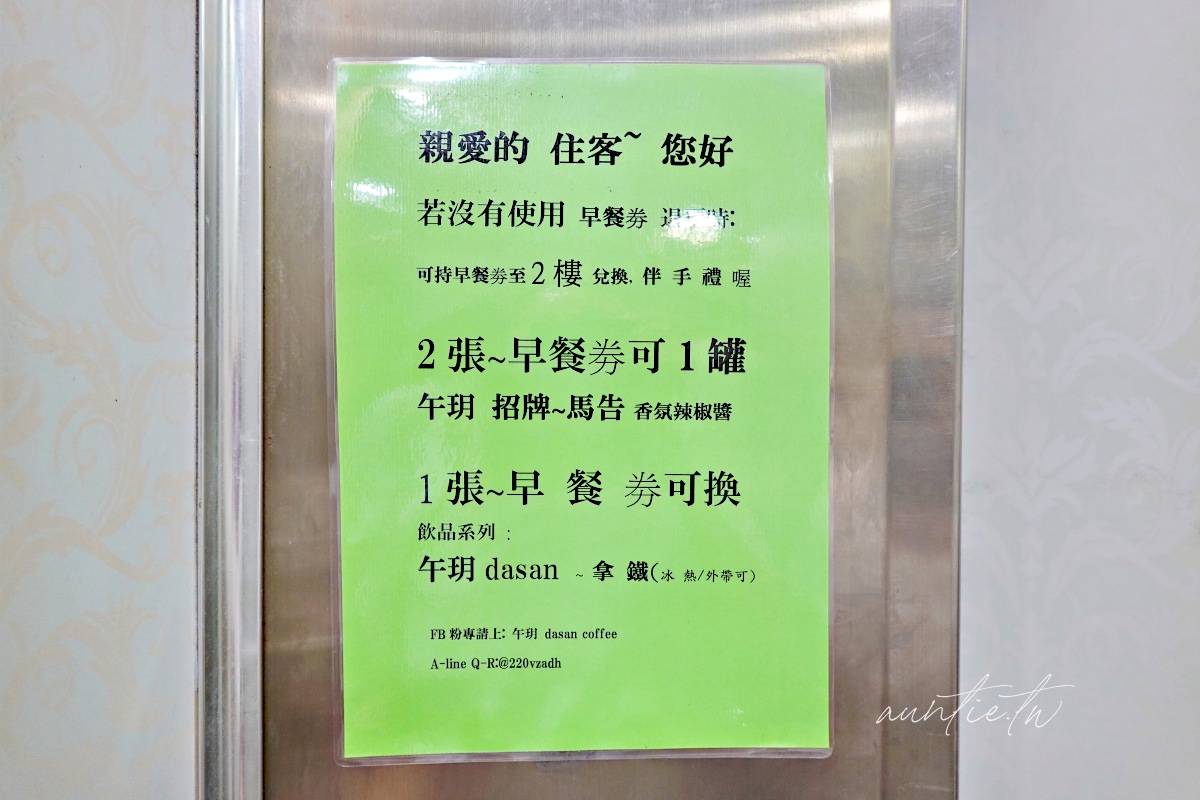 親愛的 住客~ 您好
若沒有使用 早餐券 退房時:
可持早餐券至2樓 兌換, 伴 手 禮 喔
2 張~早餐券可 1 罐
午玥 招牌~馬告 香氛辣椒醬
1 張~早 餐 券可換
飲品系列 :
午玥 dasan ~ 拿 鐵(冰 熱/外帶可)
FB 粉專請上: 午玥 dasan coffee
A-line Q-R:@220vzadh
auntie.tw